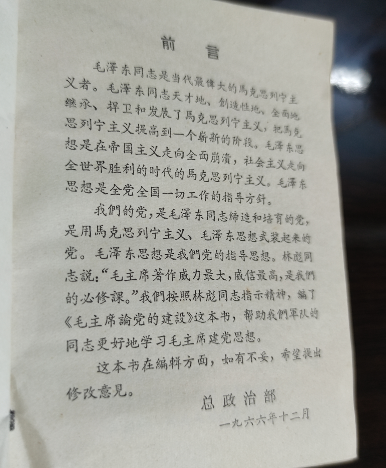 前言
毛澤东同志是当代最偉大的馬克思列宁主
义者。毛澤东同志天才地、創造性地、全面地
継承、捍卫和发展了馬克思列宁主义，把馬克
思列宁主义提高到一个嶄新的阶段。毛澤东思
想是在帝国主义走向全面崩潰，社会主义走向
全世界胜利的时代的馬克思列宁主义。毛澤东
思想是全党全国一切工作的指导方針。
我們的党，是毛澤东同志締造和培育的党，
是用馬克思列宁主义、毛澤东思想武装起来的
党。毛澤东思想是我們党的指导思想。林彪同
志說：“毛主席著作威力最大，威信最高，是我們
的必修課。”我們按照林彪同志指示精神，編了
《毛主席論党的建設》这本书，帮助我們軍队的
同志更好地学习毛主席建党思想。
这本书在編輯方面，如有不妥，希望提出
修改意见。
总政治部
一九六六年十二月